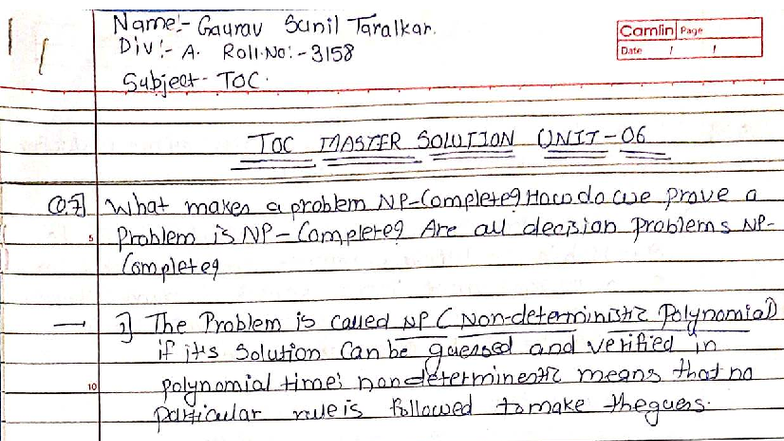 Name:- Gaurav Sunil Taralkar.
Div:- A. Roll.No:- 3158
Subject- TOC.
Camlin Page
Date / /
TOC MASTER SOLUTION UNIT-06
Q.7] What makes a problem NP-Complete? How do we prove a
Problem is NP-Complete? Are all decision problems NP-
5
Complete?
— 1] The Problem is called NP (Non-deterministic Polynomial)
if it's Solution Can be guessed and verified in
10 polynomial time; nondeterminestic means that no
particular rule is followed to make the guess.